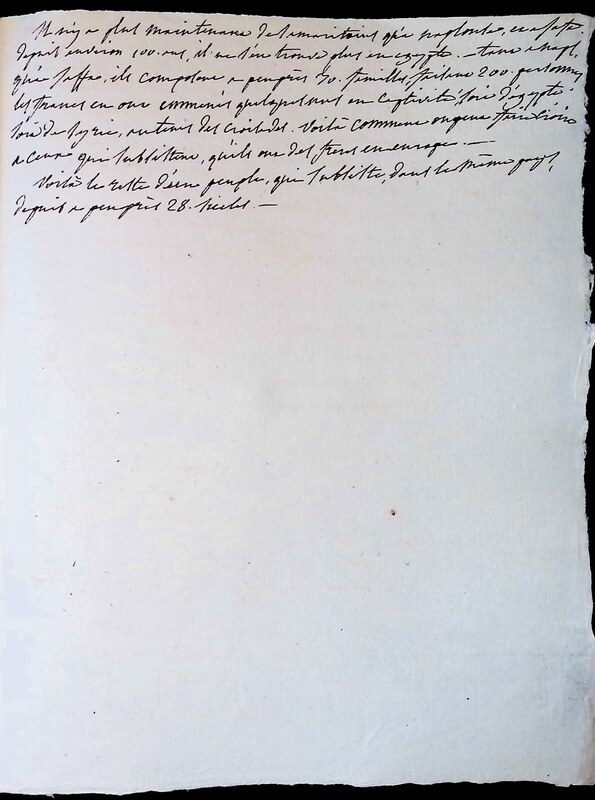 Il n'y a plus maintenant de samaritains qu'a naplouse, et a jaffa.
depuis environ 100. ans, il ne s'en trouve plus en egypte. — tant a napl.
qu'a jaffa, ils composent a peu près 30. familles faisant 200. personnes.
les francs en ont emmenés quelques uns en captivité, soit d'egypte
soit de syrie, au tems des croisades. Voilà comment on peut
a ceux qui subsistent, qu'ils ont des freres en europe. —
Voilà le reste d'un peuple, qui subsiste, dans le même pays,
depuis a peu près 28. siecles. —